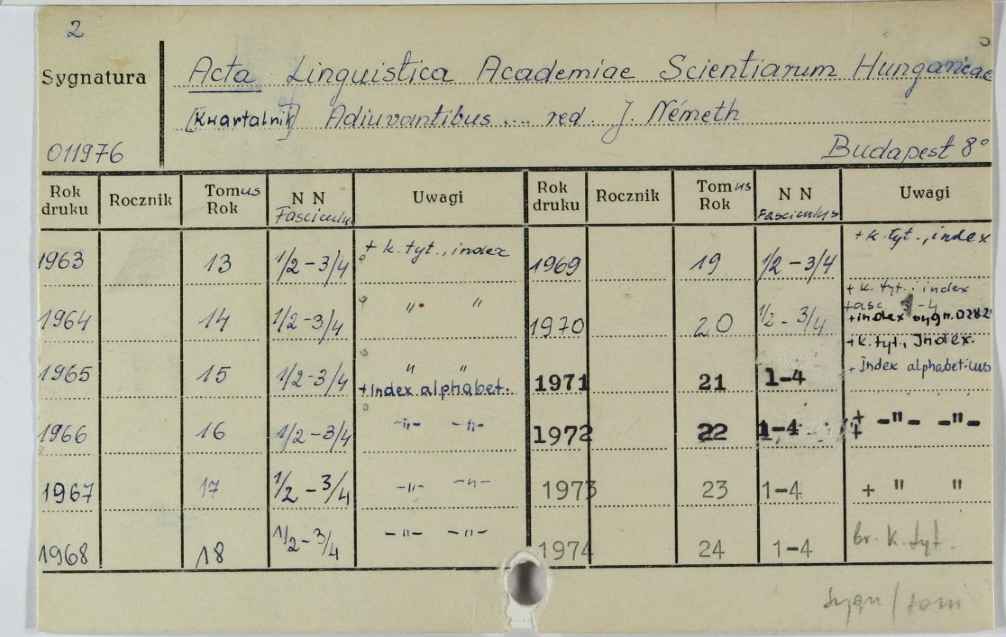 2
Sygnatura
Acta Linguistica Academiae Scientiarum Hungaricae
[Kwartalnik] Adiuvantibus ... red. J. Németh
011976
Budapest 8°
Rok druku Rocznik Tomus Rok N N Fasciculus Uwagi Rok druku Rocznik Tomus Rok N N Fasciculus Uwagi
1963 13 1/2-3/4 + k. tyt., index 1969 19 1/2-3/4 + k. tyt., index
1964 14 1/2-3/4 " " 1970 20 1/2-3/4 + k. tyt., index
+ index
1965 15 1/2-3/4 " " + Index alphabet. 1971 21 1-4 + k. tyt., Index.
+ Index alphabet.
1966 16 1/2-3/4 -"- -"- 1972 22 1-4 + -"- -"-
1967 17 1/2-3/4 -"- -"- 1973 23 1-4 + " "
1968 18 1/2-3/4 -"- -"- 1974 24 1-4 br. k. tyt.